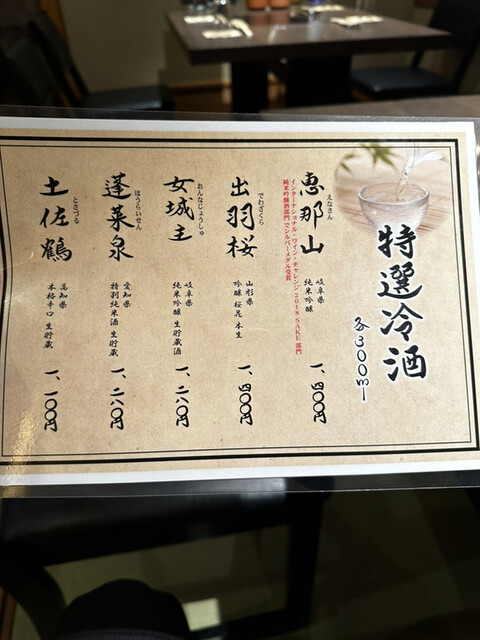 特選冷酒
各300ml
えなさん
恵那山
岐阜県
純米吟醸
一、四〇〇円
インターナショナル・ワイン・チャレンジ2018 SAKE部門
純米吟醸酒部門でシルバーメダル受賞
でわざくら
出羽桜
山形県
吟醸 桜花 本生
一、四〇〇円
おんなじょうしゅ
女城主
岐阜県
純米吟醸 生貯蔵酒
一、二八〇円
ほうらいせん
蓬莱泉
愛知県
特別純米酒 生貯蔵
一、二八〇円
とさづる
土佐鶴
高知県
本格辛口 生貯蔵
一、一〇〇円